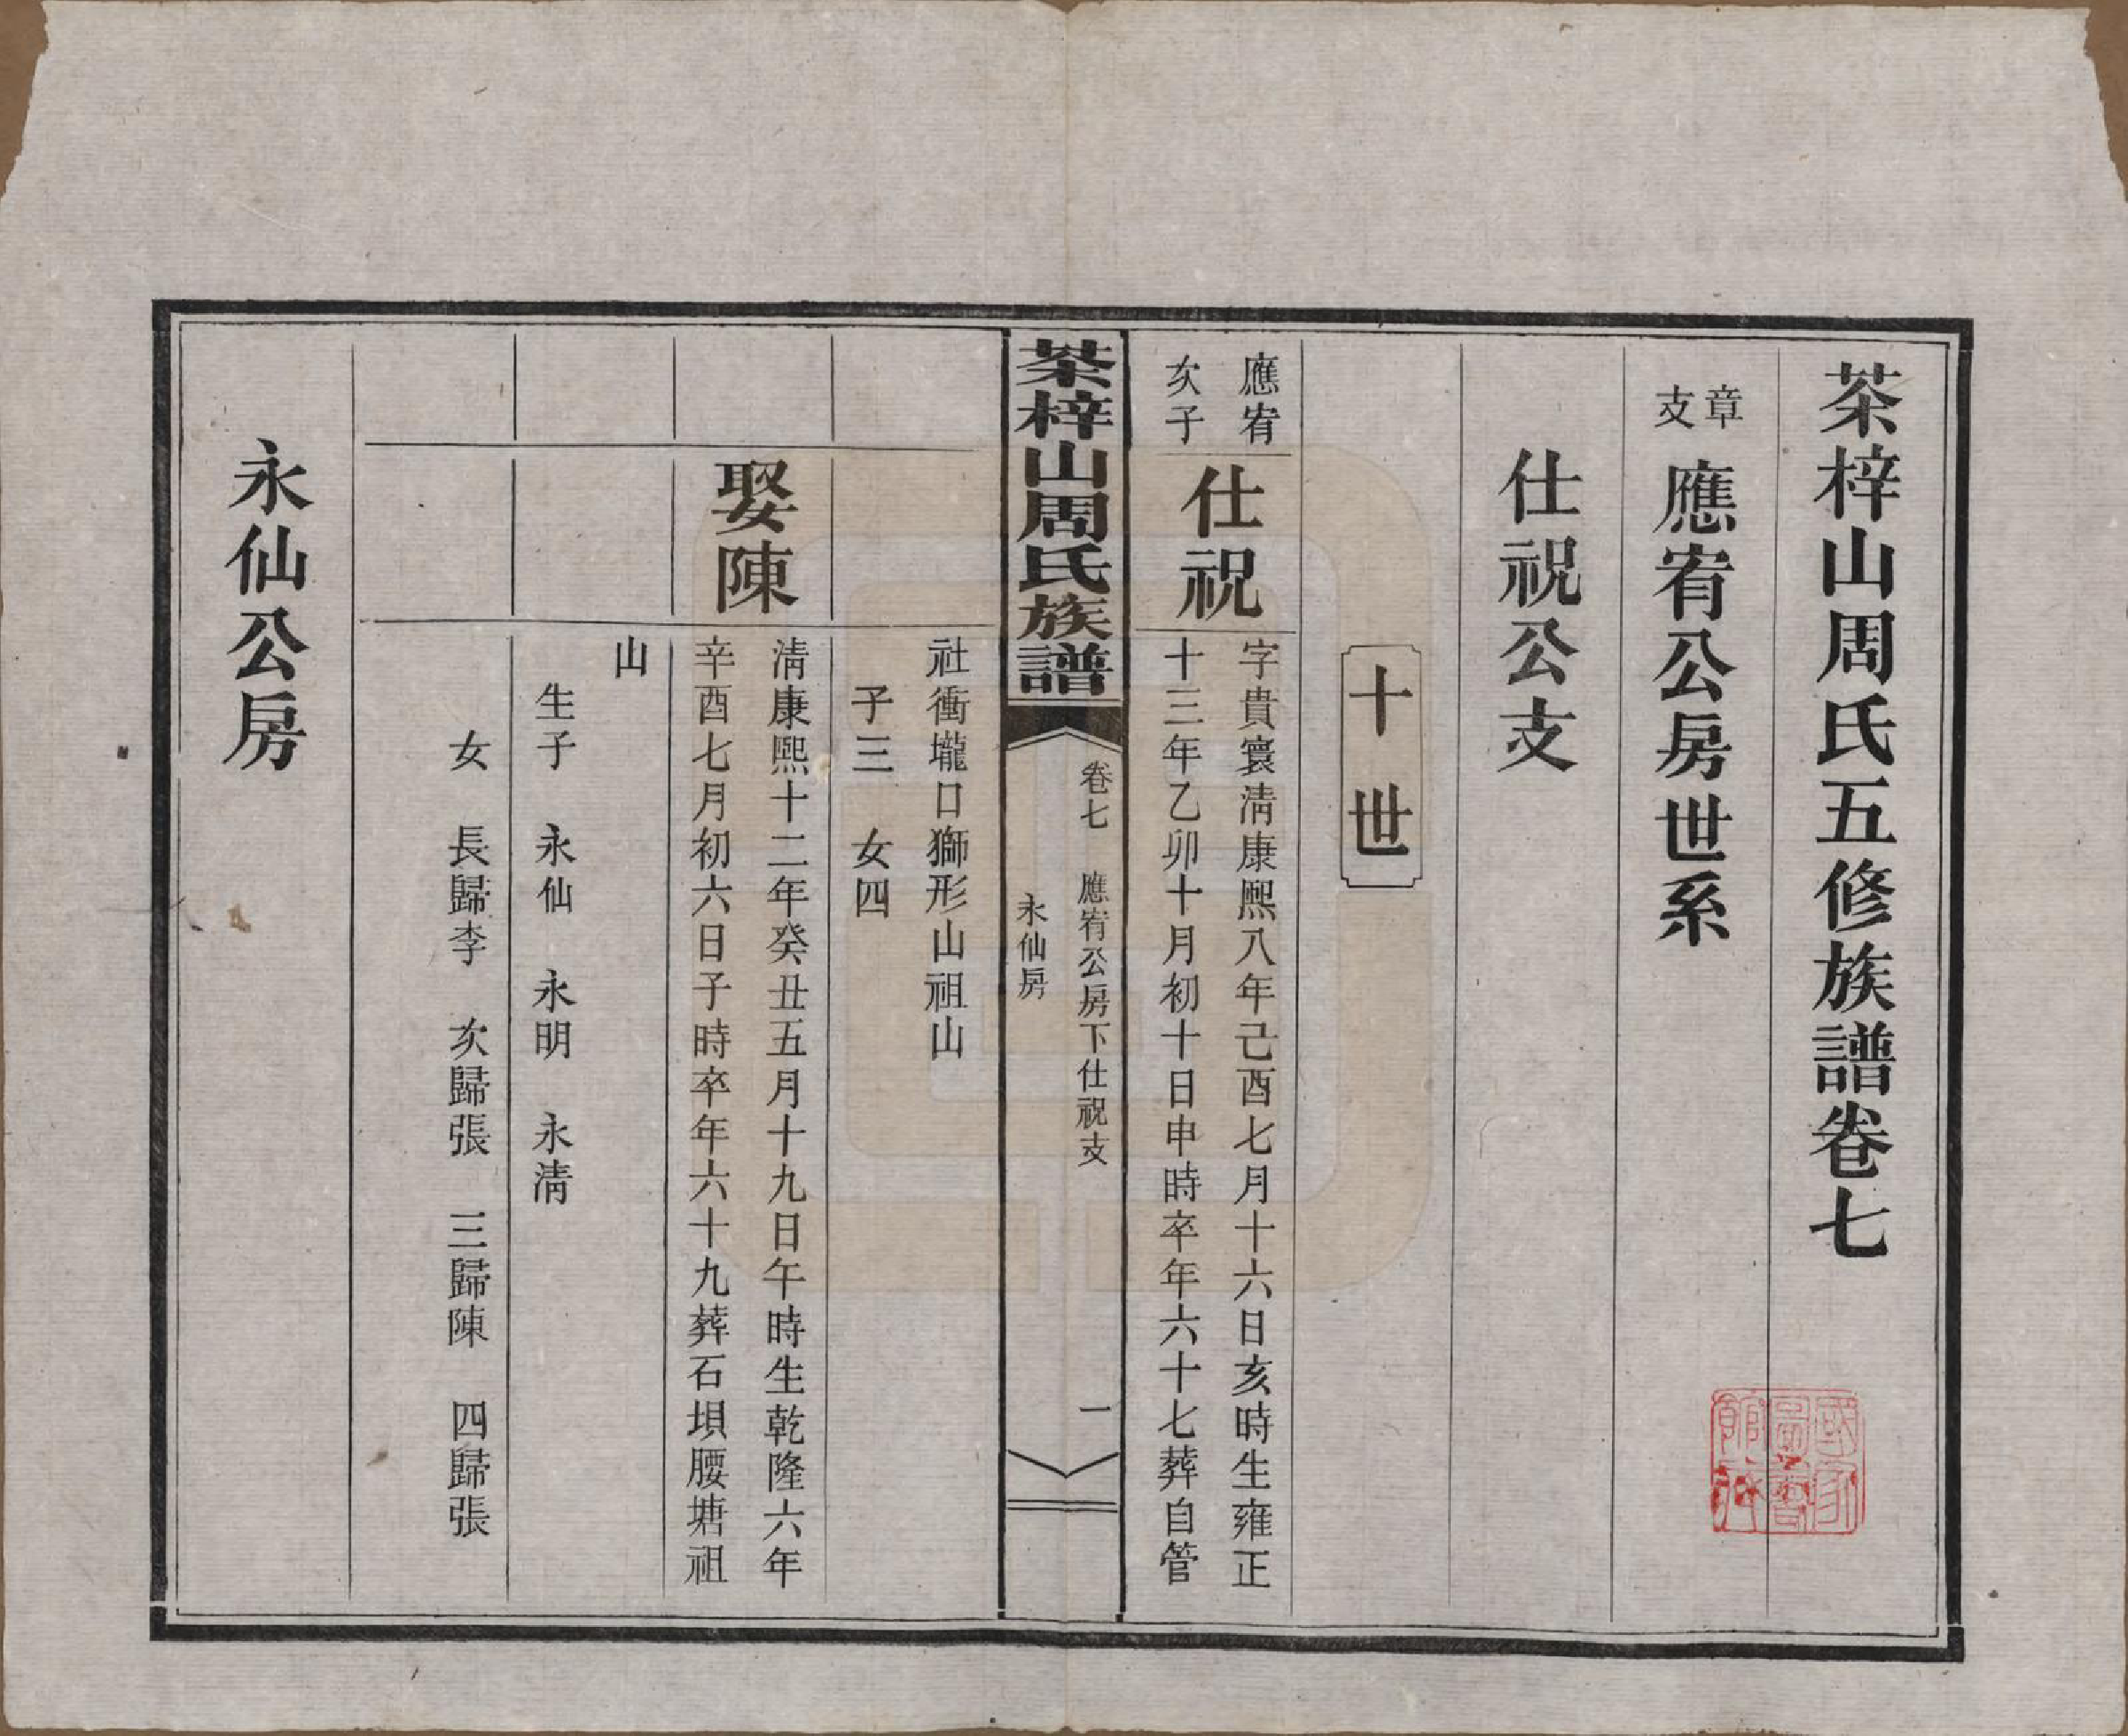 茶梓山周氏五修族譜卷七
章支
應宥公房世系
仕祝公支
十世
應宥
次子
仕祝
字貴寰清康熙八年己酉七月十六日亥時生雍正
十三年乙卯十月初十日申時卒年六十七葬自管
茶梓山周氏族譜
卷七　應宥公房下仕祝支
永仙房
一
社衝壠口獅形山祖山
子三　女四
娶陳
清康熙十二年癸丑五月十九日午時生乾隆六年
辛酉七月初六日子時卒年六十九葬石垻腰塘祖
山
生子　永仙　永明　永清
女　長歸李　次歸張　三歸陳　四歸張
永仙公房
國家
圖書
館藏